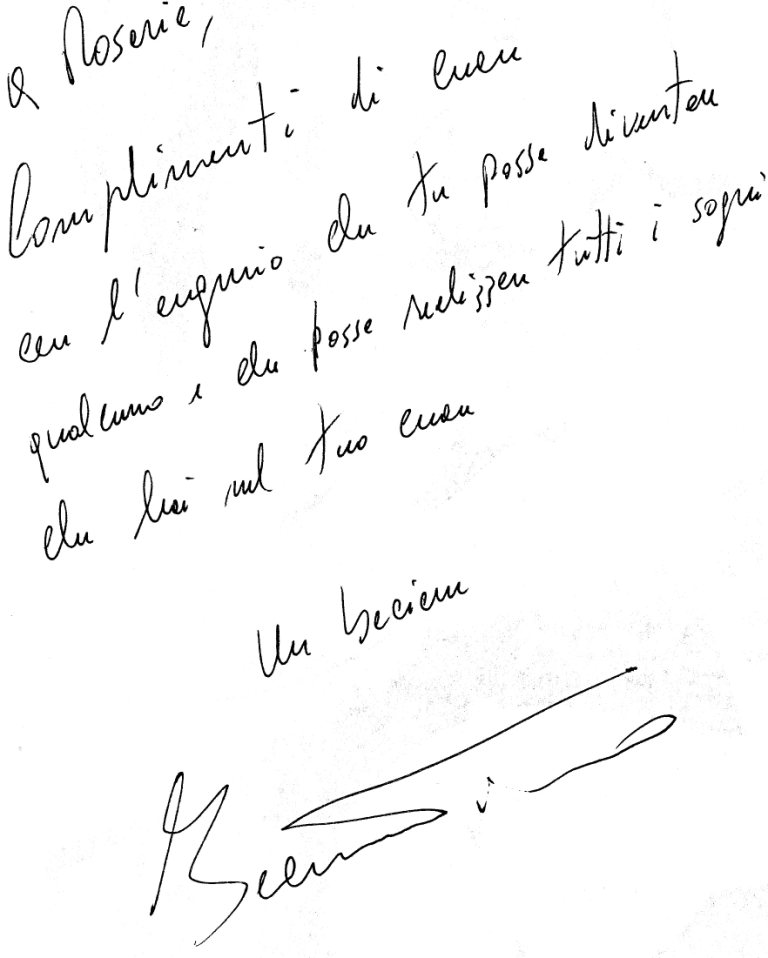 a Rosaria,
Complimenti di cuore
con l'augurio che tu possa diventare
qualcuno e che possa realizzare tutti i sogni
che hai nel tuo cuore
Un bacione